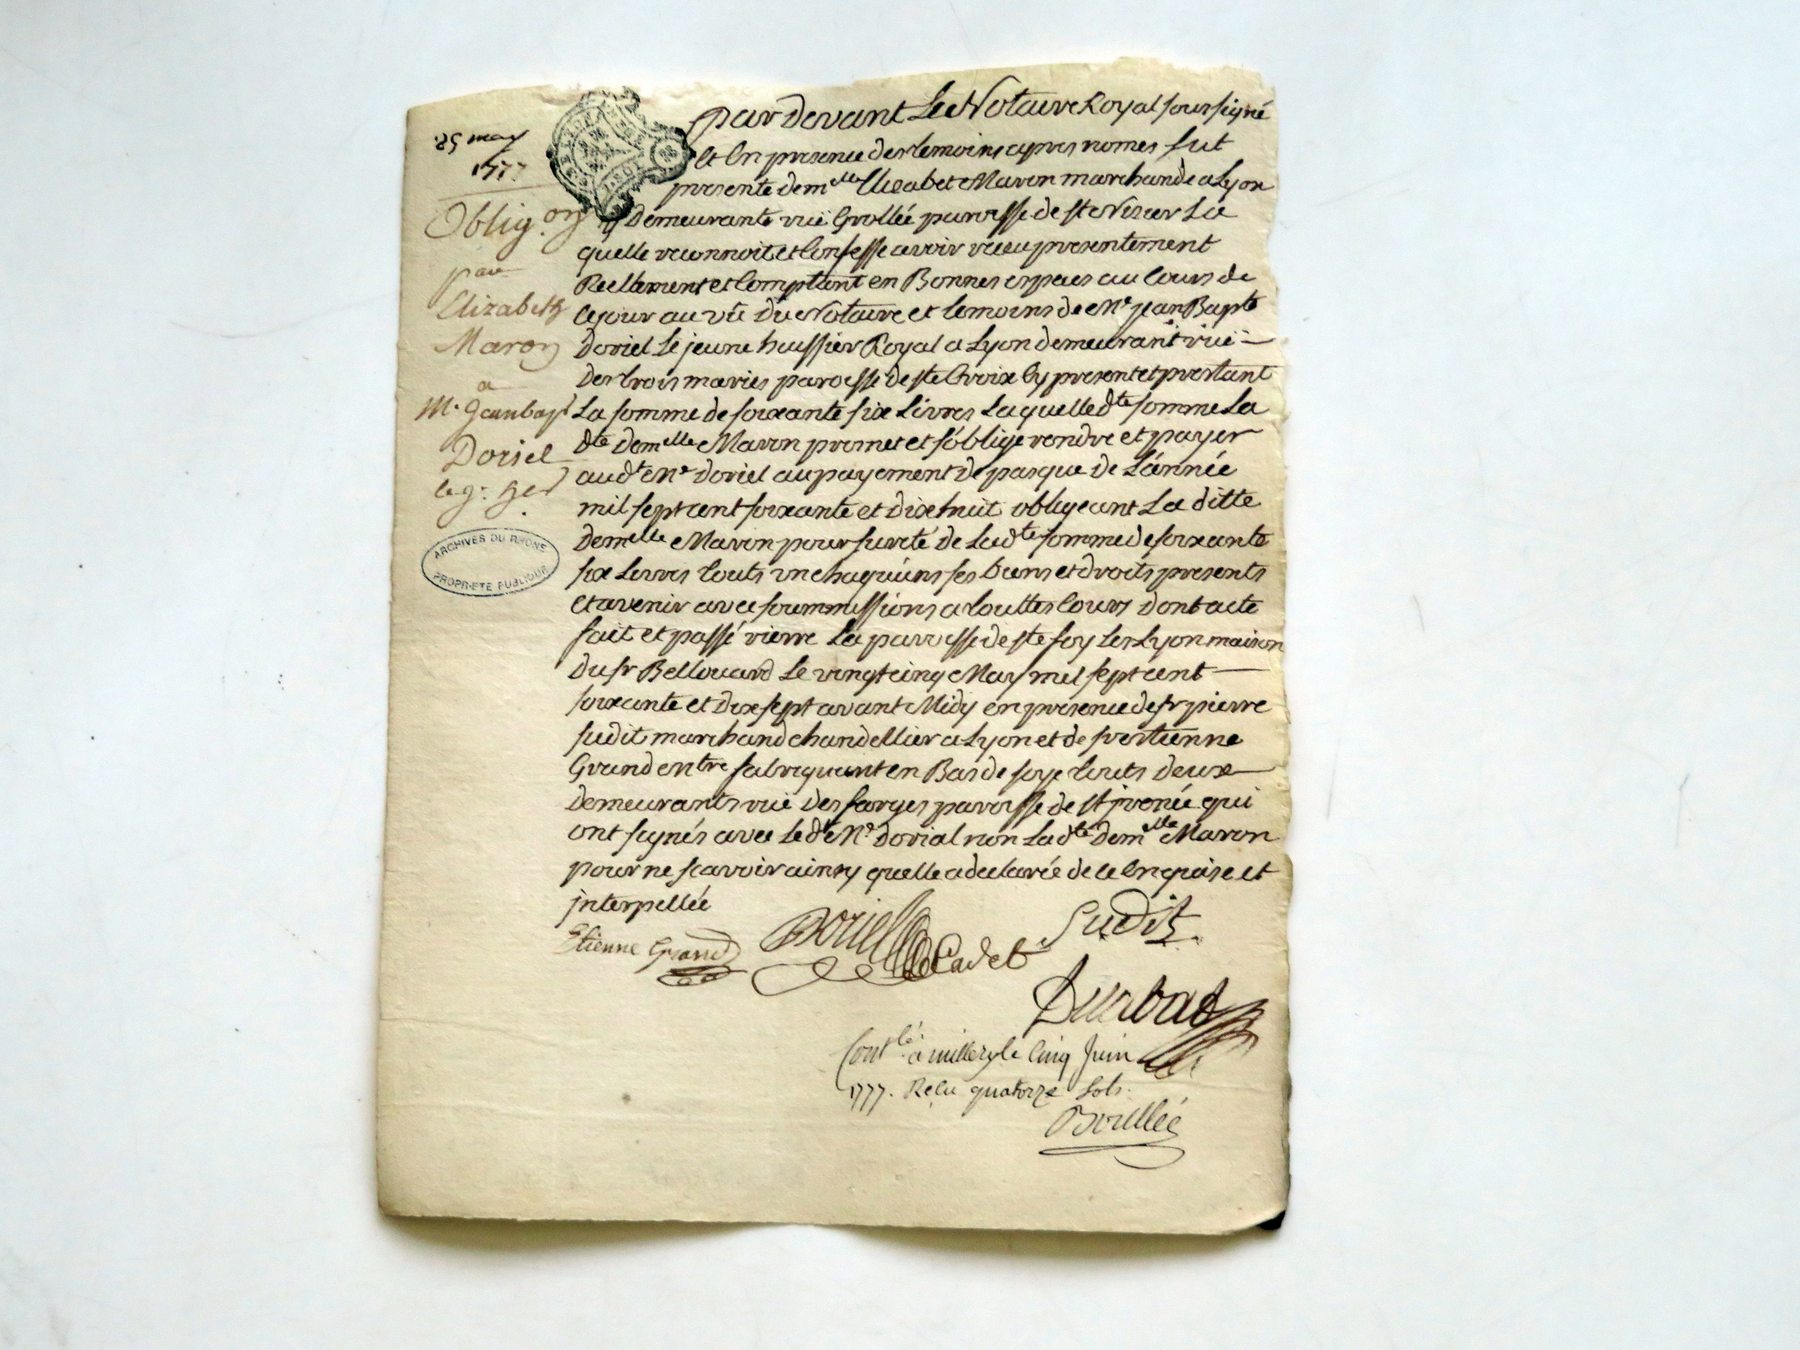 25 may
1777
Oblig.on
par
Elizabeth
Maron
a
Mr. Jeanbapt
Doriel
le j.e
ARCHIVES DU RHONE
PROPRIETE PUBLIQUE
par Devant Le Notaire Royal soussigné
Et En presence des temoins cypres només fut
presente demelle Elizabet Maron marchande a Lyon
y Demeurante ruë Grollée paroisse de st Nizier La
quelle reconnoit et Confesse avoir reçu presentement
Reellement et Comptant en Bonnes especes au Cours de
ce jour au vü Du Notaire et temoins de Me jean Bapte
Doriel Le jeune huissier Royal a Lyon demeurant ruë
Des trois maries paroisse de ste Croix Cy present et prestant
La somme de soixante six Livres Laquelle dte somme La
dte demelle Maron promet et s'oblige rendre et payer
audt Me Doriel au payement de pasque de L'année
mil sept cent soixante et dix huit obligeant La ditte
Demelle Maron pour sureté de Ladte somme de soixante
six Livres touts un chaquúns ses biens et droits presents
et avenir avec soummissions a touttes Cours dont acte
fait et passé rierre La paroisse de ste foy Les Lyon maison
du sr Bellouard Le vingt cinq May mil sept cent
soixante et dix sept avant Midy en presence de sr pierre
sudit marchand chandellier a Lyon et de sr estienne
Grand Mtre fabriquant en Bas de soye touts deux
demeurants ruë des farges paroisse de st jrenée qui
ont signés avec Le dt Me Dorial non La dte demelle Maron
pour ne scavoir ainsy quelle a declarée de ce Enquise et
jnterpellée
Etienne Grand Doriel Cadet Sudit
Durbat
Contlé a millery le Cinq Juin
1777. Reçu quatorze Sols.
Boullée